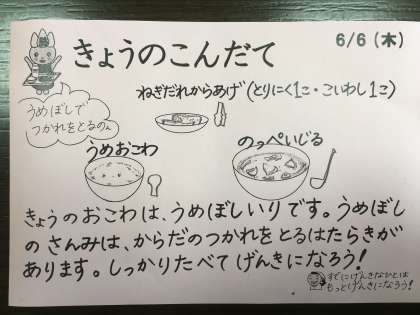 きょうのこんだて
6/6(木)
うめぼしで
つかれをとるのん
ねぎだれからあげ(とりにく1こ・こいわし1こ)
うめおこわ
のっぺいじる
きょうのおこわは、うめぼしいりです。うめぼし
の さんみは、からだのつかれを とるはたらきが
あります。しっかりたべて げんきになろう!
すでにげんきなひとは
もっとげんきになろう!